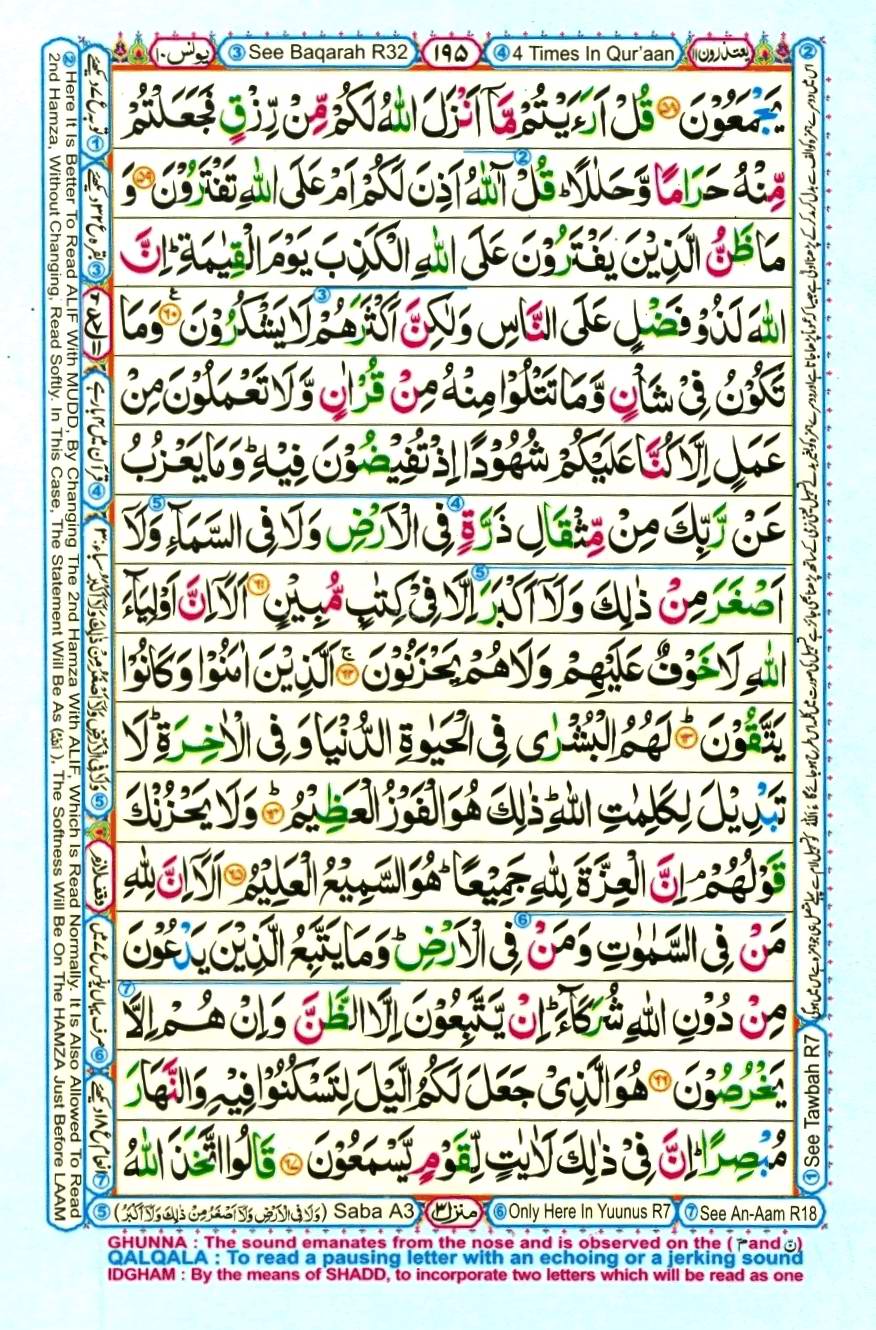 يونس ١٠
③ See Baqarah R32
١٩٥
④ 4 Times In Qur'aan
يعتذرون ١١
يَجْمَعُوْنَ ﴿٥٨﴾ قُلْ اَرَءَيْتُمْ مَّاۤ اَنْزَلَ اللّٰهُ لَكُمْ مِّنْ رِّزْقٍ فَجَعَلْتُمْ
مِّنْهُ حَرَامًا وَّحَلٰلًا ؕ قُلْ آٰللّٰهُ اَذِنَ لَكُمْ اَمْ عَلَى اللّٰهِ تَفْتَرُوْنَ ﴿٥٩﴾ وَ
مَا ظَنُّ الَّذِيْنَ يَفْتَرُوْنَ عَلَى اللّٰهِ الْكَذِبَ يَوْمَ الْقِيٰمَةِ ؕ اِنَّ
اللّٰهَ لَذُوْ فَضْلٍ عَلَى النَّاسِ وَلٰكِنَّ اَكْثَرَهُمْ لَا يَشْكُرُوْنَ ﴿٦٠﴾ وَمَا
تَكُوْنُ فِيْ شَاْنٍ وَّمَا تَتْلُوْا مِنْهُ مِنْ قُرْاٰنٍ وَّلَا تَعْمَلُوْنَ مِنْ
عَمَلٍ اِلَّا كُنَّا عَلَيْكُمْ شُهُوْدًا اِذْ تُفِيْضُوْنَ فِيْهِ ؕ وَمَا يَعْزُبُ
عَنْ رَّبِّكَ مِنْ مِّثْقَالِ ذَرَّةٍ فِي الْاَرْضِ وَلَا فِي السَّمَآءِ وَلَاۤ
اَصْغَرَ مِنْ ذٰلِكَ وَلَاۤ اَكْبَرَ اِلَّا فِيْ كِتٰبٍ مُّبِيْنٍ ﴿٦١﴾ اَلَاۤ اِنَّ اَوْلِيَآءَ
اللّٰهِ لَا خَوْفٌ عَلَيْهِمْ وَلَا هُمْ يَحْزَنُوْنَ ﴿٦٢﴾ الَّذِيْنَ اٰمَنُوْا وَكَانُوْا
يَتَّقُوْنَ ﴿٦٣﴾ لَهُمُ الْبُشْرٰى فِي الْحَيٰوةِ الدُّنْيَا وَفِي الْاٰخِرَةِ ؕ لَا
تَبْدِيْلَ لِكَلِمٰتِ اللّٰهِ ؕ ذٰلِكَ هُوَ الْفَوْزُ الْعَظِيْمُ ﴿٦٤﴾ وَلَا يَحْزُنْكَ
قَوْلُهُمْ ۘ اِنَّ الْعِزَّةَ لِلّٰهِ جَمِيْعًا ؕ هُوَ السَّمِيْعُ الْعَلِيْمُ ﴿٦٥﴾ اَلَاۤ اِنَّ لِلّٰهِ
مَنْ فِي السَّمٰوٰتِ وَمَنْ فِي الْاَرْضِ ؕ وَمَا يَتَّبِعُ الَّذِيْنَ يَدْعُوْنَ
مِنْ دُوْنِ اللّٰهِ شُرَكَآءَ ؕ اِنْ يَّتَّبِعُوْنَ اِلَّا الظَّنَّ وَاِنْ هُمْ اِلَّا
يَخْرُصُوْنَ ﴿٦٦﴾ هُوَ الَّذِيْ جَعَلَ لَكُمُ الَّيْلَ لِتَسْكُنُوْا فِيْهِ وَالنَّهَارَ
مُبْصِرًا ؕ اِنَّ فِيْ ذٰلِكَ لَاٰيٰتٍ لِّقَوْمٍ يَّسْمَعُوْنَ ﴿٦٧﴾ قَالُوا اتَّخَذَ اللّٰهُ
② Here It Is Better To Read ALIF With MUDD, By Changing The 2nd Hamza With ALIF, Which Is Read Normally. It Is Also Allowed To Read
2nd Hamza, Without Changing, Read Softly. In This Case, The Statement Will Be As ( ), The Softness Will Be On The HAMZA Just Before LAAM
① See Tawbah R7
⑤ (وَلَا فِي الْاَرْضِ وَلَاۤ اَصْغَرَ مِنْ ذٰلِكَ وَلَاۤ اَكْبَرُ) Saba A3
منزل ٣
⑥ Only Here In Yuunus R7
⑦ See An-Aam R18
GHUNNA : The sound emanates from the nose and is observed on the ( م and ن )
QALQALA : To read a pausing letter with an echoing or a jerking sound
IDGHAM : By the means of SHADD, to incorporate two letters which will be read as one